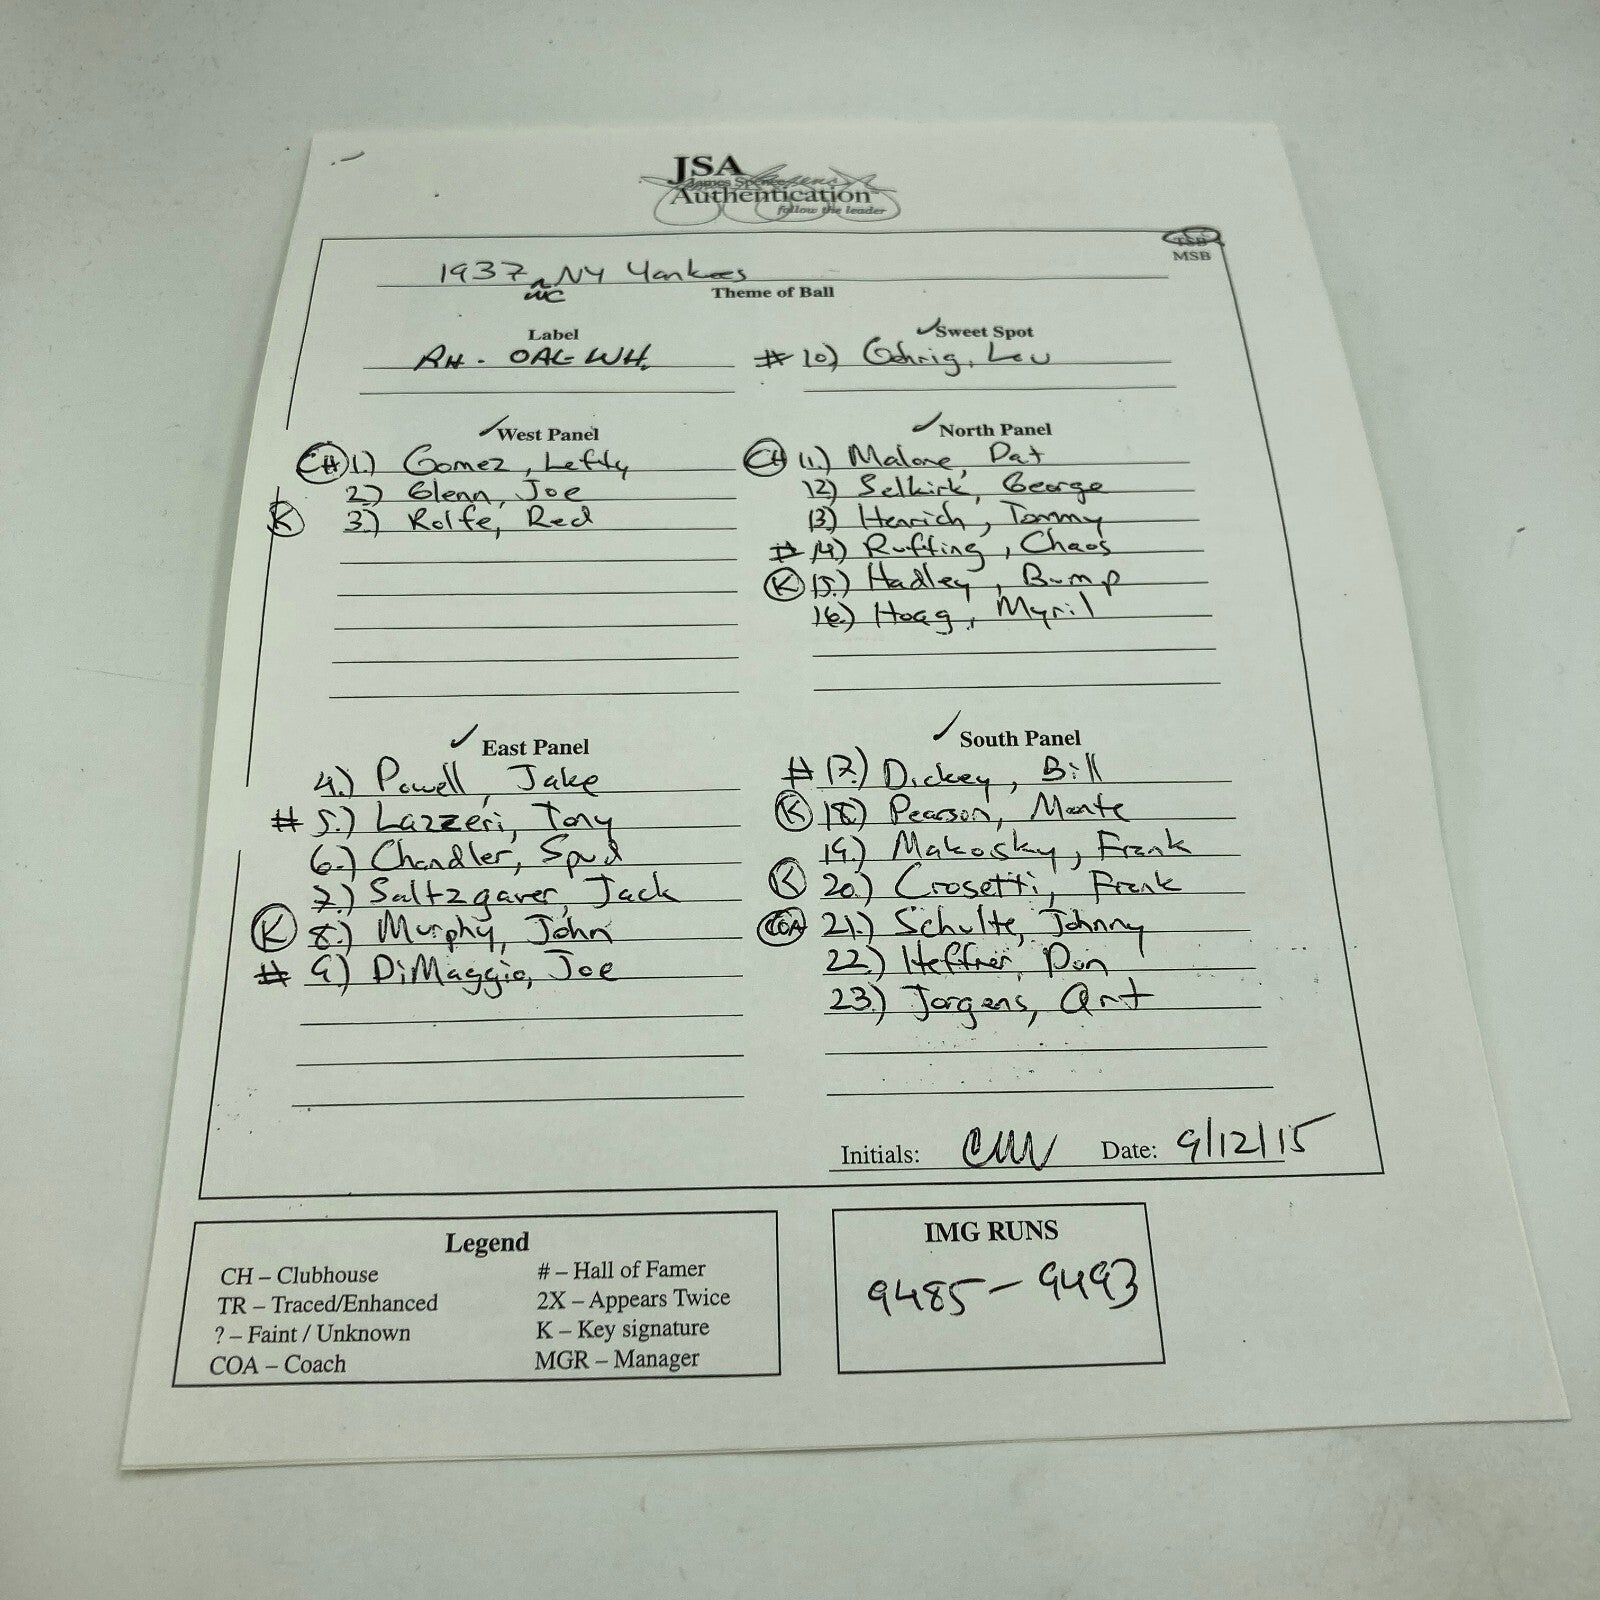 JSA
James Spence
Authentication
follow the leader
TSB
MSB
1937 NY Yankees
WC
Theme of Ball
Label
RH - OAL-WH.
✓Sweet Spot
# 10) Gehrig, Lou
✓West Panel
CH 1.) Gomez, Lefty
2) Glenn, Joe
K 3.) Rolfe, Red
✓North Panel
CH 11.) Malone, Pat
12) Selkirk, George
13) Henrich, Tommy
# 14) Ruffing, Chaos
K 15.) Hadley, Bump
16.) Hoag, Myril
✓East Panel
4.) Powell, Jake
# 5.) Lazzeri, Tony
6.) Chandler, Spud
7.) Saltzgaver, Jack
K 8.) Murphy, John
# 9) DiMaggio, Joe
✓South Panel
# 17.) Dickey, Bill
K 18) Pearson, Monte
19.) Makosky, Frank
K 20.) Crosetti, Frank
COA 21.) Schulte, Johnny
22.) Heffner, Don
23.) Jorgens, Art
Initials: Date: 9/12/15
Legend
CH – Clubhouse
TR – Traced/Enhanced
? – Faint / Unknown
COA – Coach
# – Hall of Famer
2X – Appears Twice
K – Key signature
MGR – Manager
IMG RUNS
9485 – 9493